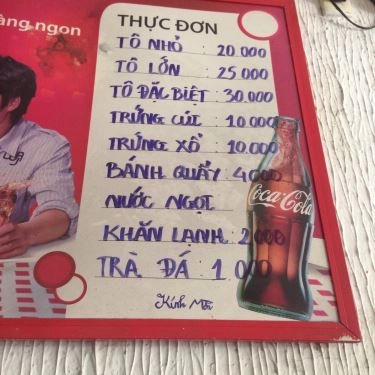 àng ngon
THỰC ĐƠN
TÔ NHỎ : 20.000
TÔ LỚN : 25.000
TÔ ĐẶC BIỆT : 30.000
TRỨNG CÚT : 10.000
TRỨNG XỔ : 10.000
BÁNH QUẨY 4000
NƯỚC NGỌT
Coca-Cola
KHĂN LẠNH : 2.000
TRÀ ĐÁ : 1 000
Kính Mời